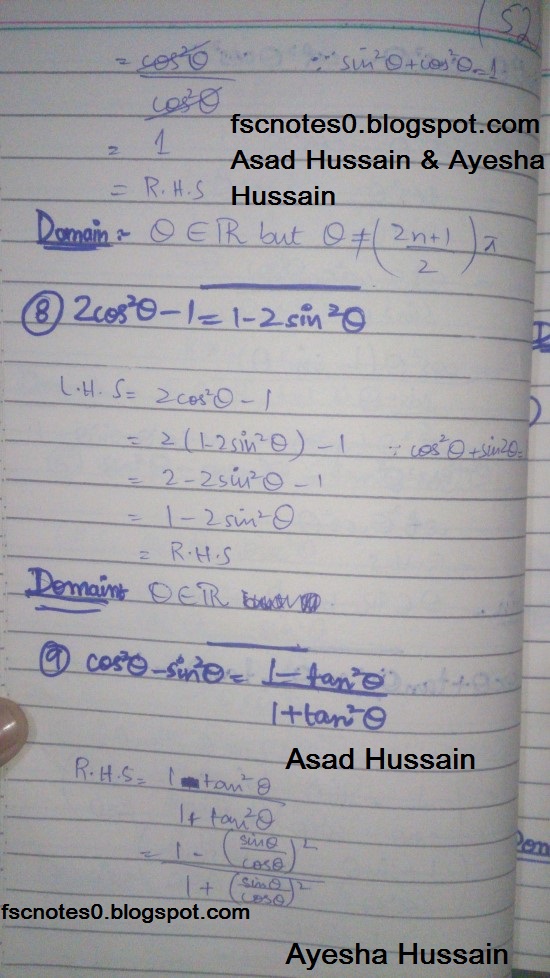 (52
= cos²θ / cos²θ ∵ sin²θ+cos²θ=1
fscnotes0.blogspot.com
= 1
Asad Hussain & Ayesha
= R.H.S
Hussain
Domain:- θ ∈ ℝ but θ ≠ ((2n+1)/2)π
⑧ 2cos²θ-1 = 1-2sin²θ
L.H.S = 2cos²θ-1
= 2(1-2sin²θ)-1 ∵ cos²θ+sin2θ=
= 2-2sin²θ-1
= 1-2sin²θ
= R.H.S
Domain: θ∈ℝ
⑨ cos²θ-sin²θ = (1-tan²θ)/(1+tan²θ)
Asad Hussain
R.H.S = (1-tan²θ)/(1+tan²θ)
= (1-(sinθ/cosθ)²)/(1+(sinθ/cosθ)²)
fscnotes0.blogspot.com
Ayesha Hussain